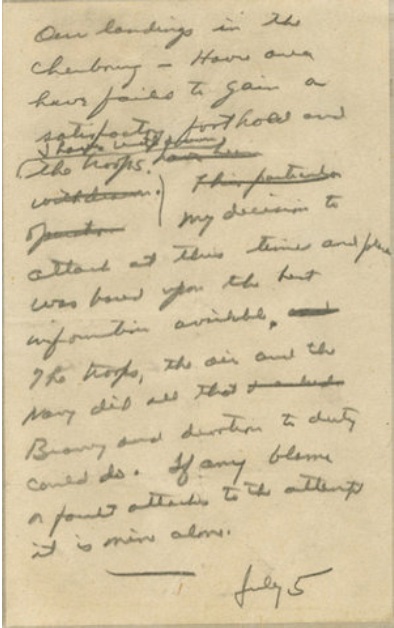 Our landings in the
Cherbourg - Havre area
have failed to gain a
satisfactory foothold and
I have withdrawn
the troops. have been
withdrawn. This particular
operation my decision to
attack at this time and place
was based upon the best
information available, and
The troops, the air and the
Navy did all that
Bravery and devotion to duty
could do. If any blame
or fault attaches to the attempt
it is mine alone.
July 5